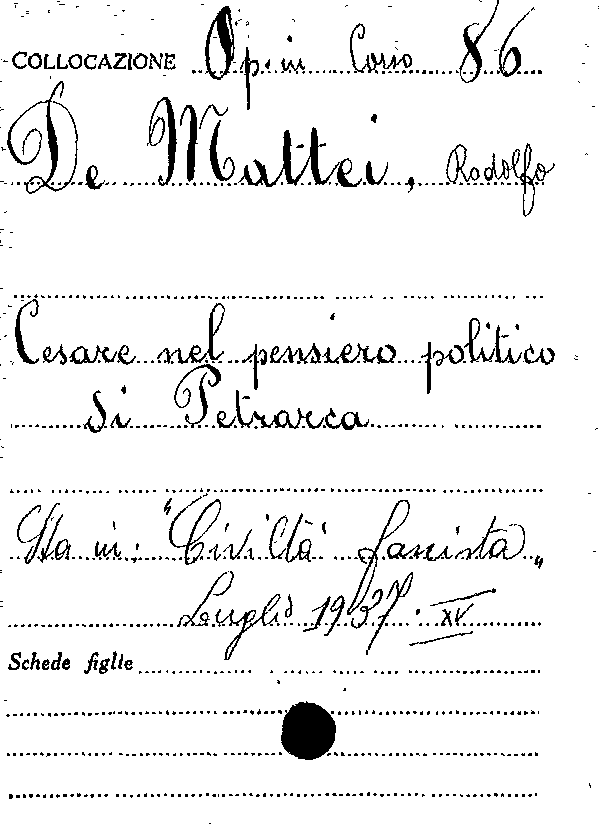 COLLOCAZIONE Op. in Corso 86
De Mattei, Rodolfo
Cesare nel pensiero politico
di Petrarca
Sta in: "Civiltà fascista„
Luglio 1937. XV
Schede figlie